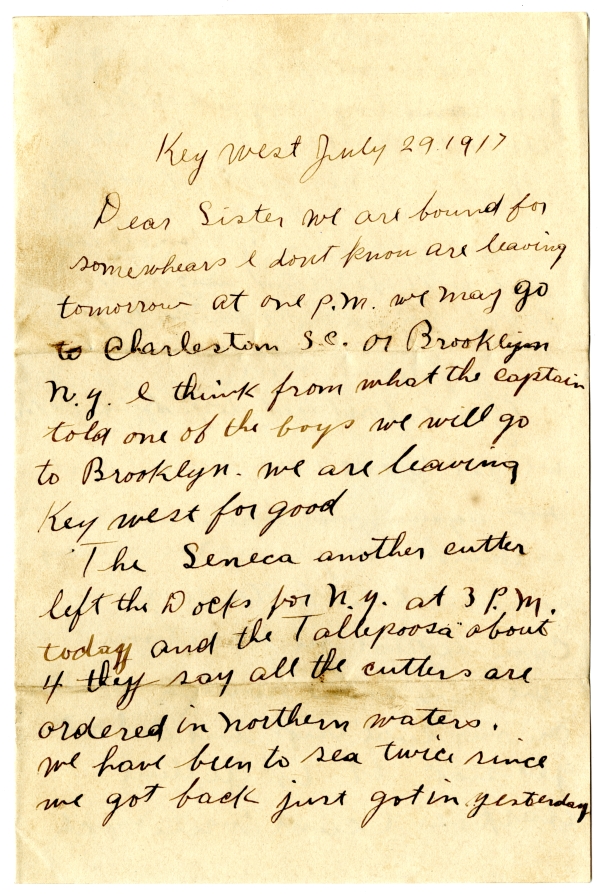 Key west July 29.1917
Dear Sister we are bound for
somewhears I dont know are leaving
tomorrow at one P.M. we may go
to Charleston S.C. or Brooklyn
N.Y. I think from what the captain
told one of the boys we will go
to Brooklyn. we are leaving
Key west for good
The Seneca another cutter
left the Docks for N.Y. at 3 P.M.
today and the Tallepoosa about
4 they say all the cutters are
ordered in northern waters.
we have been to sea twice since
we got back just got in yesterday